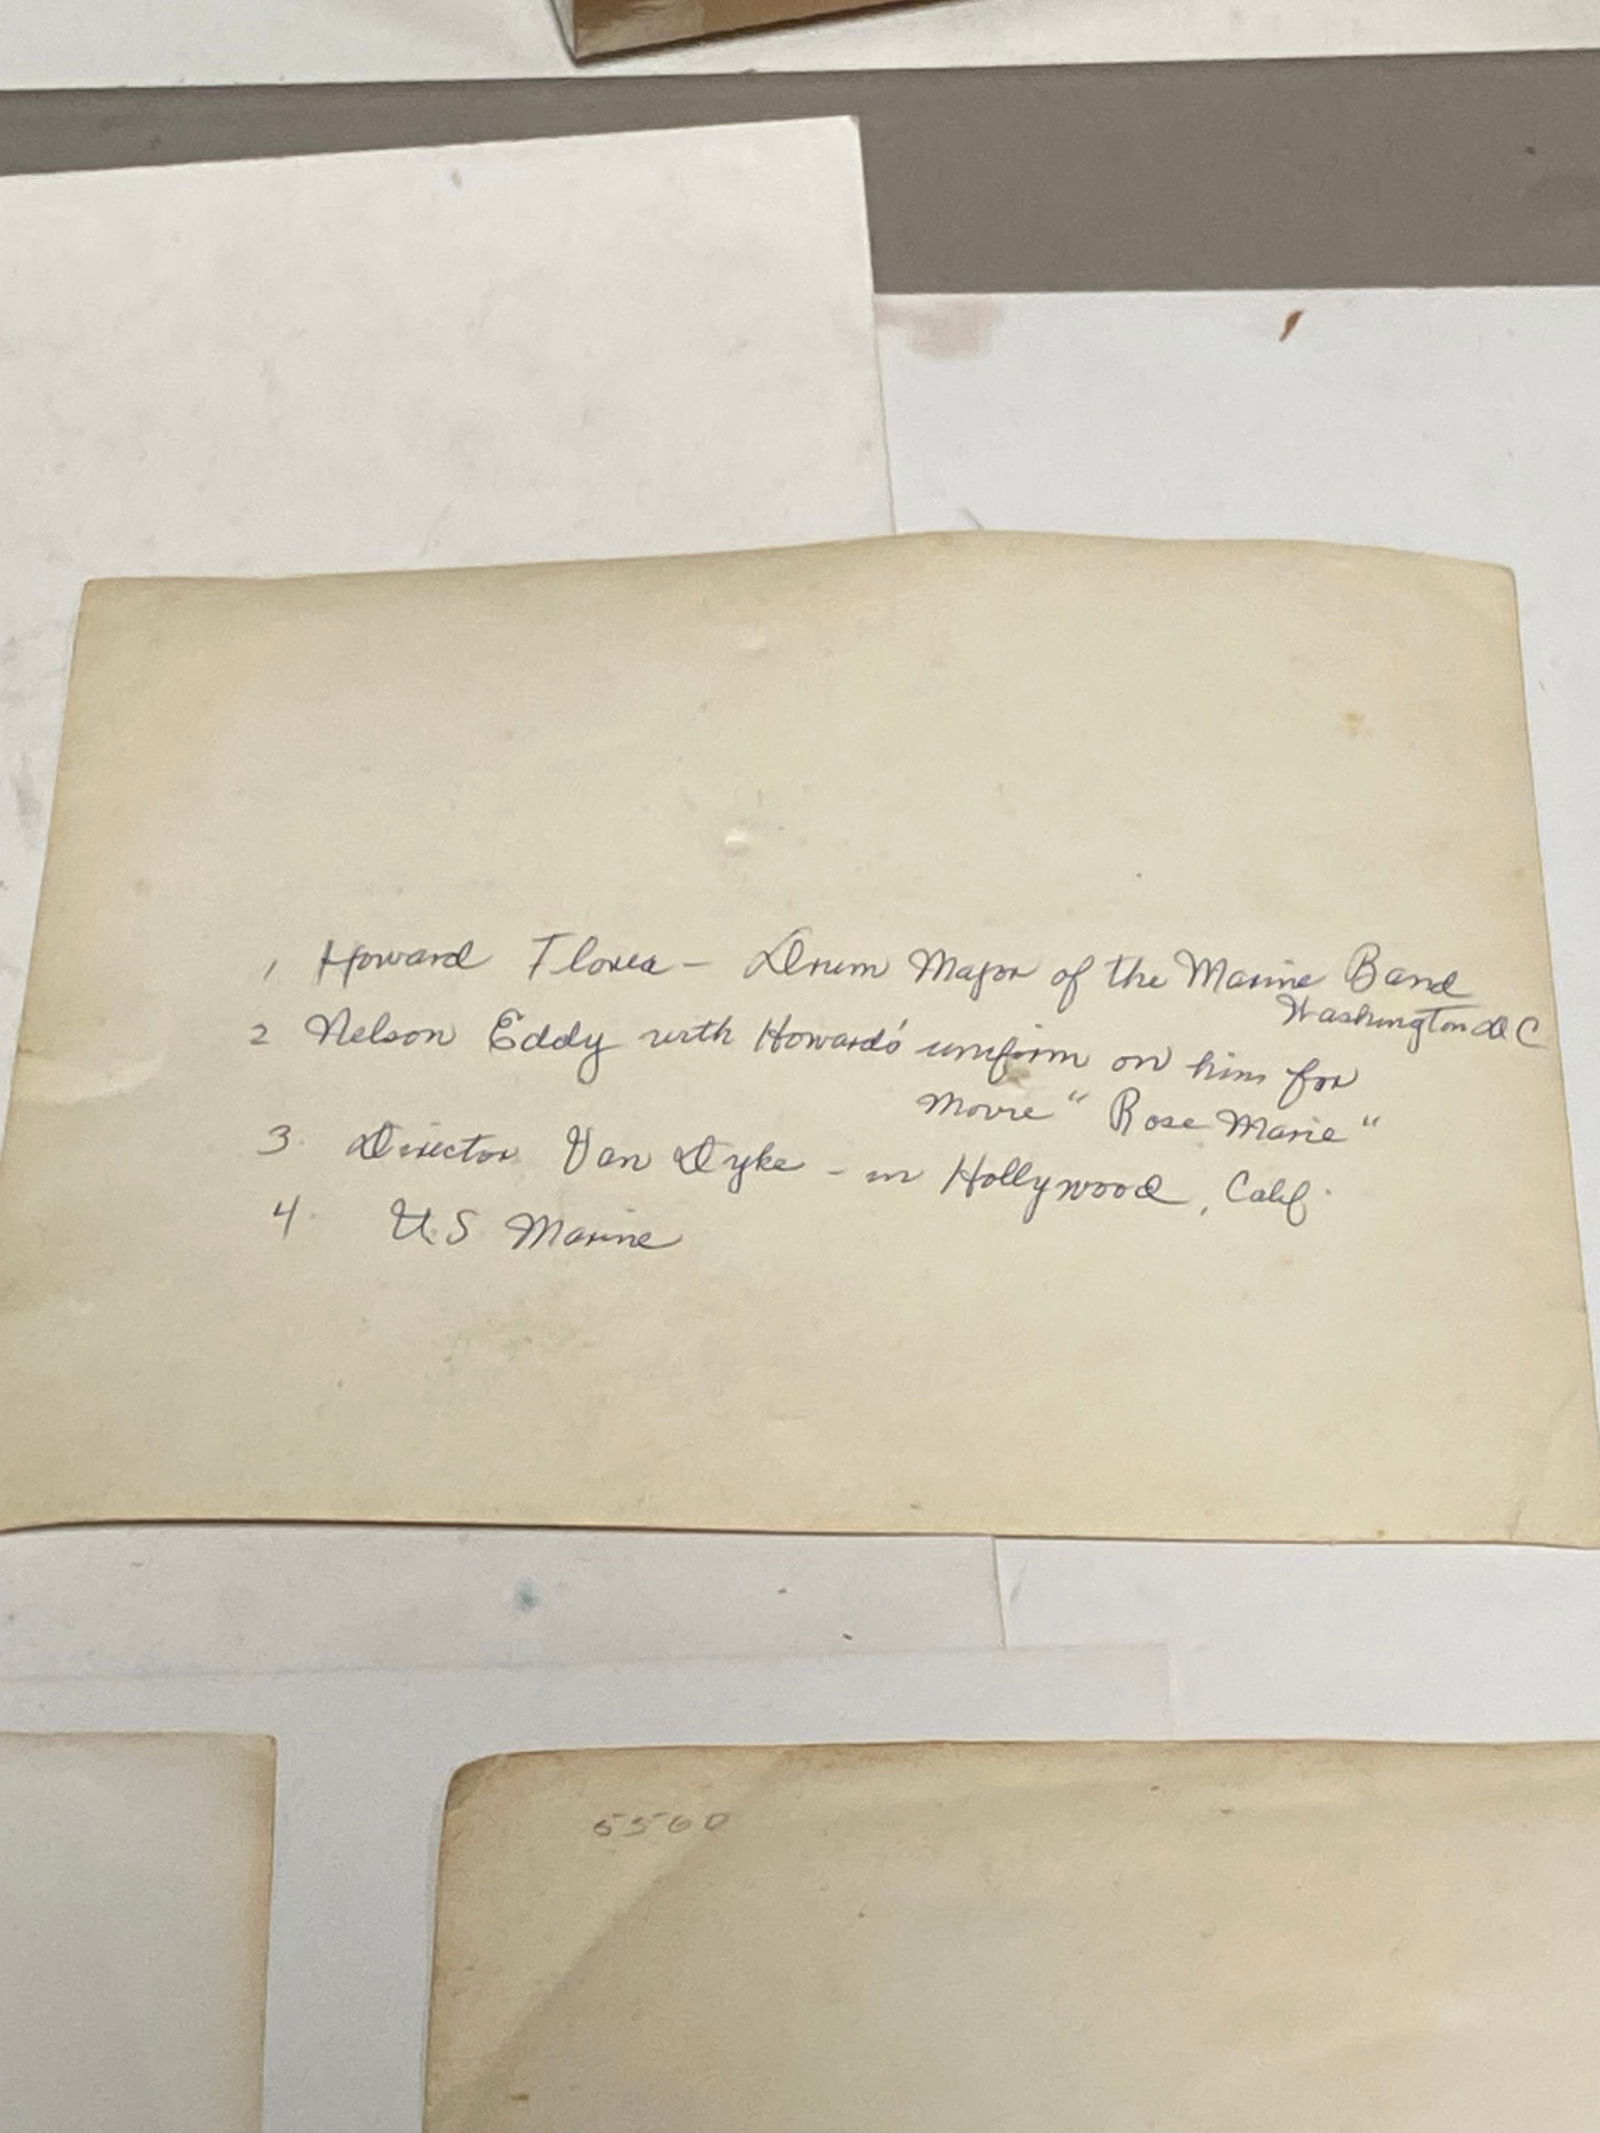 1 Howard Florea - Drum Major of the Marine Band
Washington DC
2 Nelson Eddy with Howard's uniform on him for
Movie " Rose Marie "
3. Director Van Dyke - in Hollywood, Calif.
4. U.S Marine
5560